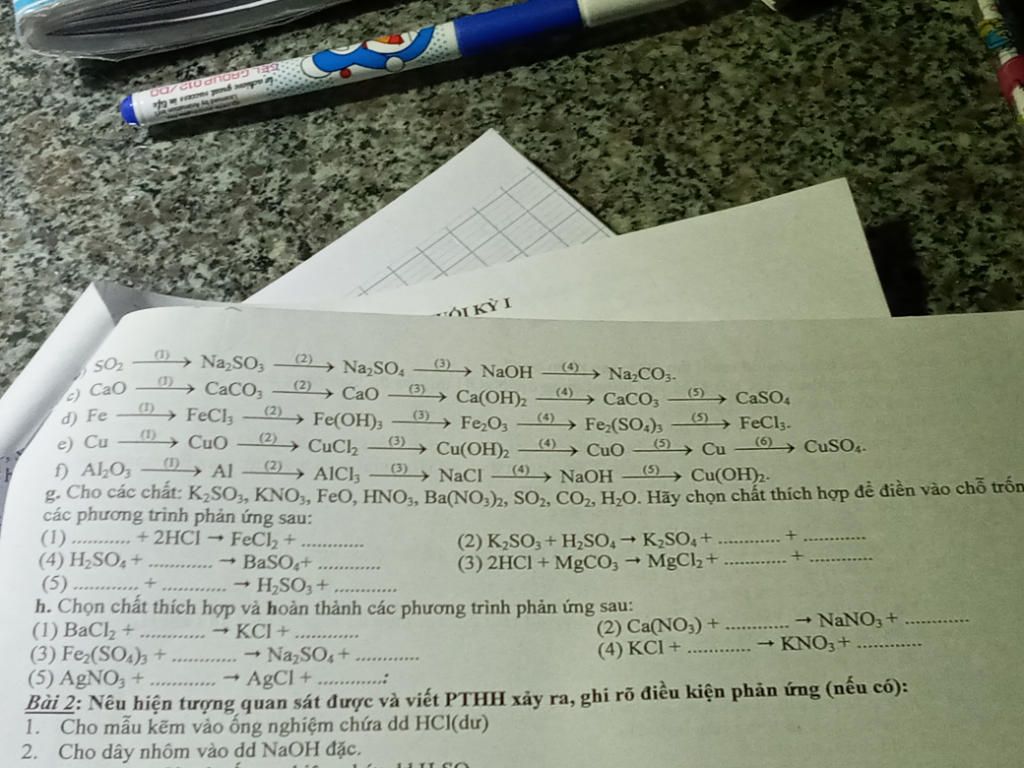 GEL GROUP 012/DO
to achieve great success in life
ỐI KỲ I
SO₂ (1)→ Na₂SO₃ (2)→ Na₂SO₄ (3)→ NaOH (4)→ Na₂CO₃.
c) CaO (1)→ CaCO₃ (2)→ CaO (3)→ Ca(OH)₂ (4)→ CaCO₃ (5)→ CaSO₄
d) Fe (1)→ FeCl₃ (2)→ Fe(OH)₃ (3)→ Fe₂O₃ (4)→ Fe₂(SO₄)₃ (5)→ FeCl₃.
e) Cu (1)→ CuO (2)→ CuCl₂ (3)→ Cu(OH)₂ (4)→ CuO (5)→ Cu (6)→ CuSO₄.
f) Al₂O₃ (1)→ Al (2)→ AlCl₃ (3)→ NaCl (4)→ NaOH (5)→ Cu(OH)₂.
g. Cho các chất: K₂SO₃, KNO₃, FeO, HNO₃, Ba(NO₃)₂, SO₂, CO₂, H₂O. Hãy chọn chất thích hợp để điền vào chỗ trốn
các phương trình phản ứng sau:
(1) ........... + 2HCl → FeCl₂ + ............ (2) K₂SO₃ + H₂SO₄ → K₂SO₄ + ............ + ............
(4) H₂SO₄ + ............ → BaSO₄+ ............ (3) 2HCl + MgCO₃ → MgCl₂ + ............ + ............
(5) ............ + ............ → H₂SO₃ + ............
h. Chọn chất thích hợp và hoàn thành các phương trình phản ứng sau:
(1) BaCl₂ + ............ → KCl + ............ (2) Ca(NO₃) + ............ → NaNO₃ + ............
(3) Fe₂(SO₄)₃ + ............ → Na₂SO₄ + ............ (4) KCl + ............ → KNO₃ + ............
(5) AgNO₃ + ............ → AgCl + ............:
Bài 2: Nêu hiện tượng quan sát được và viết PTHH xảy ra, ghi rõ điều kiện phản ứng (nếu có):
1. Cho mẫu kẽm vào ống nghiệm chứa dd HCl(dư)
2. Cho dây nhôm vào dd NaOH đặc.